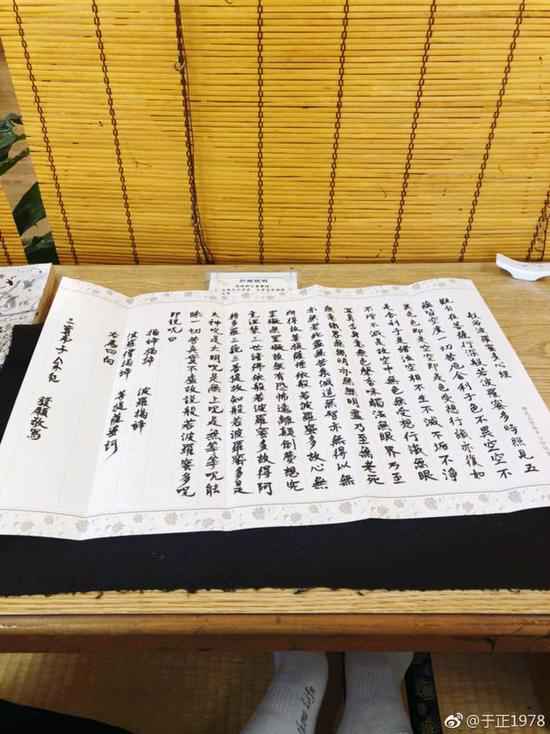 般若波羅蜜多心經
觀自在菩薩行深般若波羅蜜多時照見五
蘊皆空度一切苦厄舍利子色不異空空不
異色色即是空空即是色受想行識亦復如
是舍利子是諸法空相不生不滅不垢不淨
不增不減是故空中無色無受想行識無眼
耳鼻舌身意無色聲香味觸法無眼界乃至
無意識界無無明亦無無明盡乃至無老死
亦無老死盡無苦集滅道無智亦無得以無
所得故菩提薩埵依般若波羅蜜多故心無
罣礙無罣礙故無有恐怖遠離顛倒夢想究
竟涅槃三世諸佛依般若波羅蜜多故得阿
耨多羅三藐三菩提故知般若波羅蜜多是
大神咒是大明咒是無上咒是無等等咒能
除一切苦真實不虛故說般若波羅蜜多咒
即說咒曰
揭諦揭諦 波羅揭諦
波羅僧揭諦 菩提薩婆訶
回向
三寶弟子 發願敬寫
@于正1978